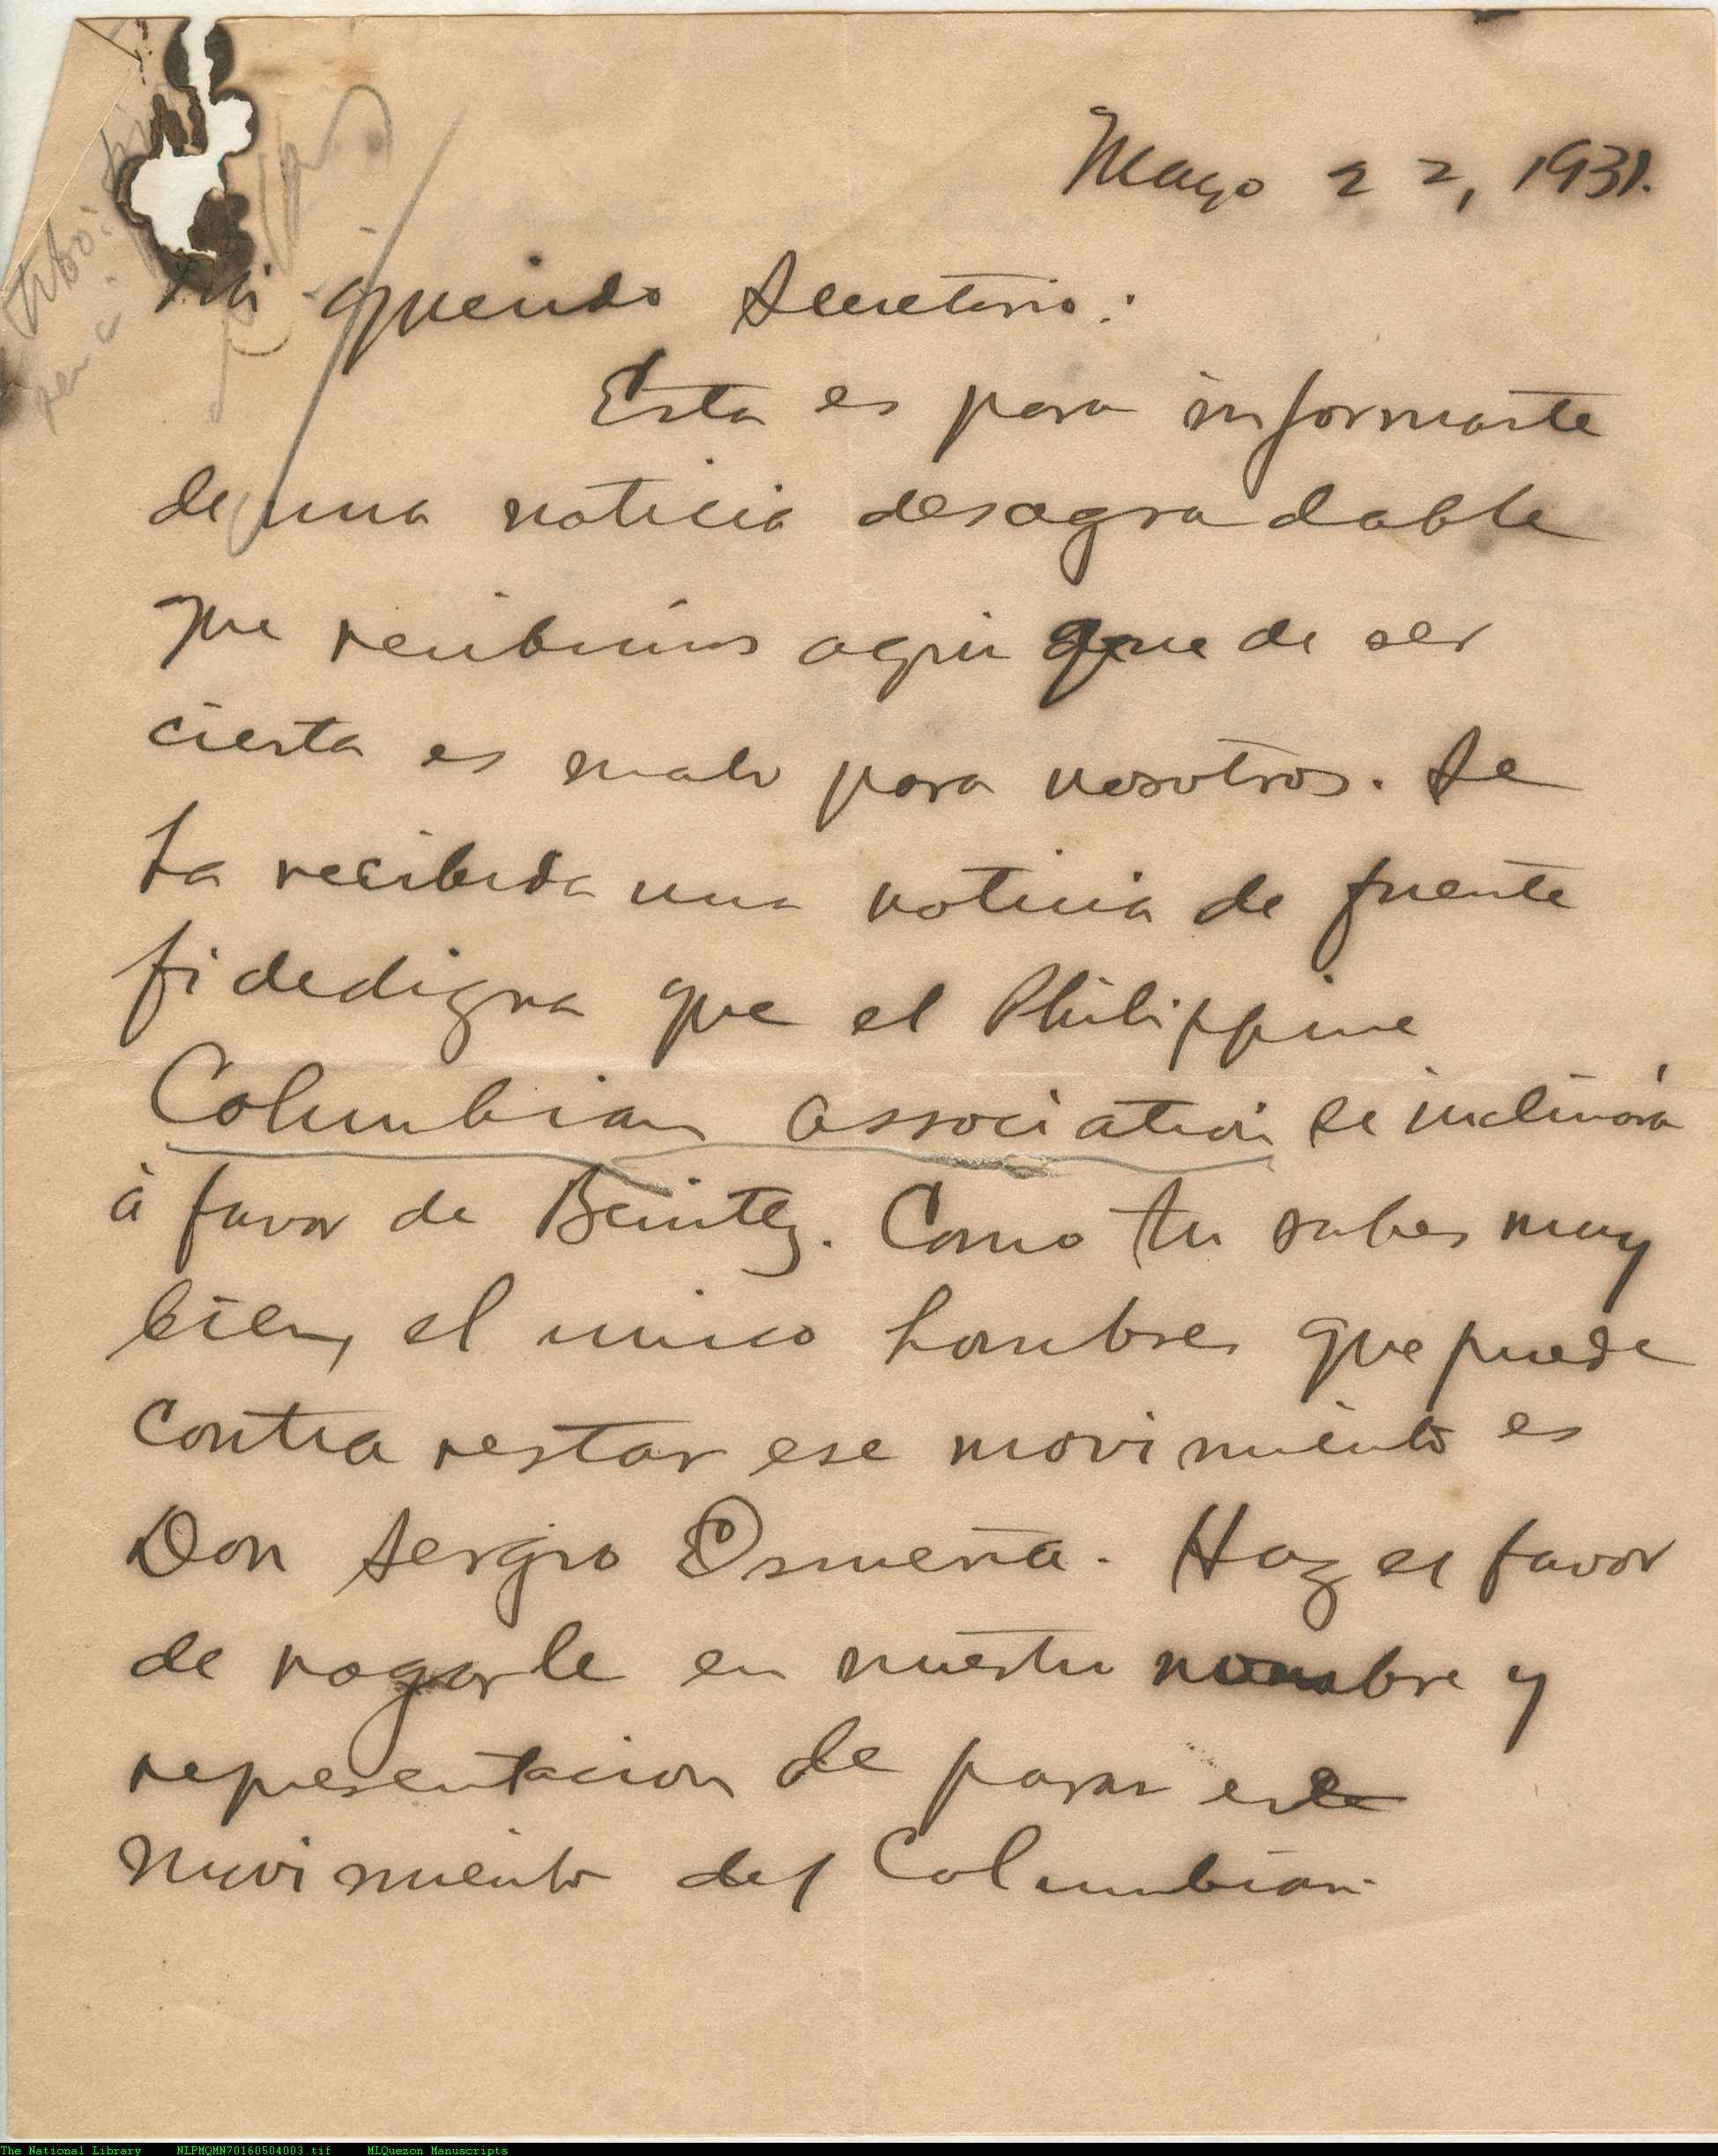 Mayo 22, 1931.
Mi querido Secretario:
Esta es para informarte
de una noticia desagradable
que recibimos aqui que de ser
cierta es malo para nosotros. Se
ha recibida una noticia de fuente
fidedigna que el Philippine
Columbian Association se inclinará
á favor de Benitez. Como tu sabes muy
bien, el unico hombre que puede
contra restar ese movimiento es
Don Sergio Osmeña. Haz el favor
de rogarle en nuestro nombre y
representacion de parar este
movimiento del Columbian.
The National Library NLPMQMN70160504003.tif MLQuezon Manuscripts